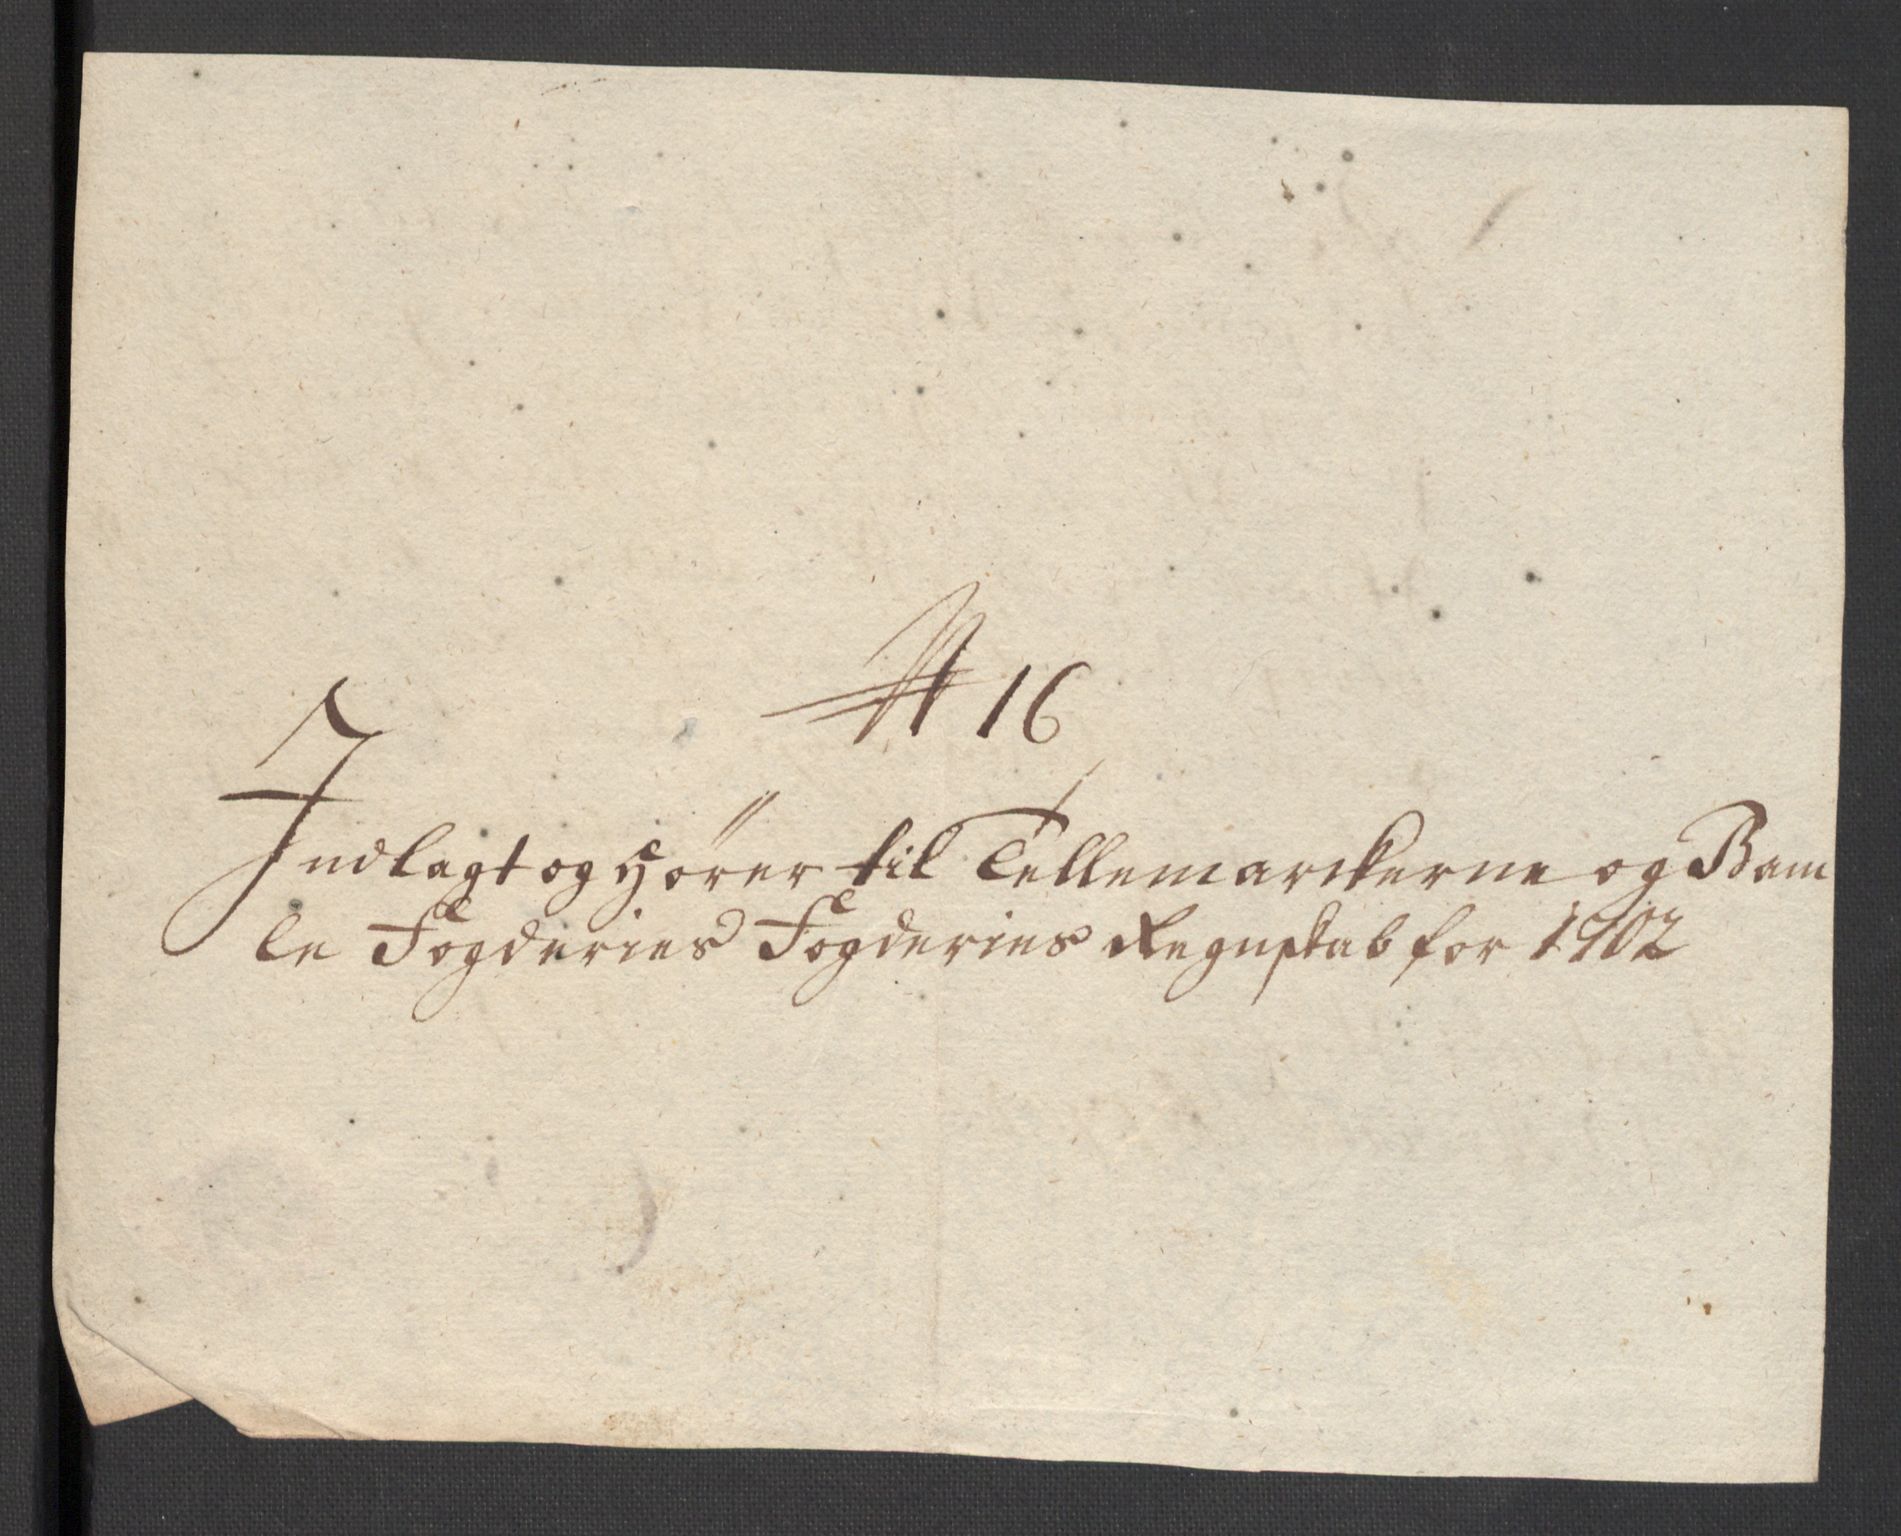 # 16
Indlagt og Hører til Tellemarckerne og Bam
le Fogderies Fogderies Regnskab for 1702